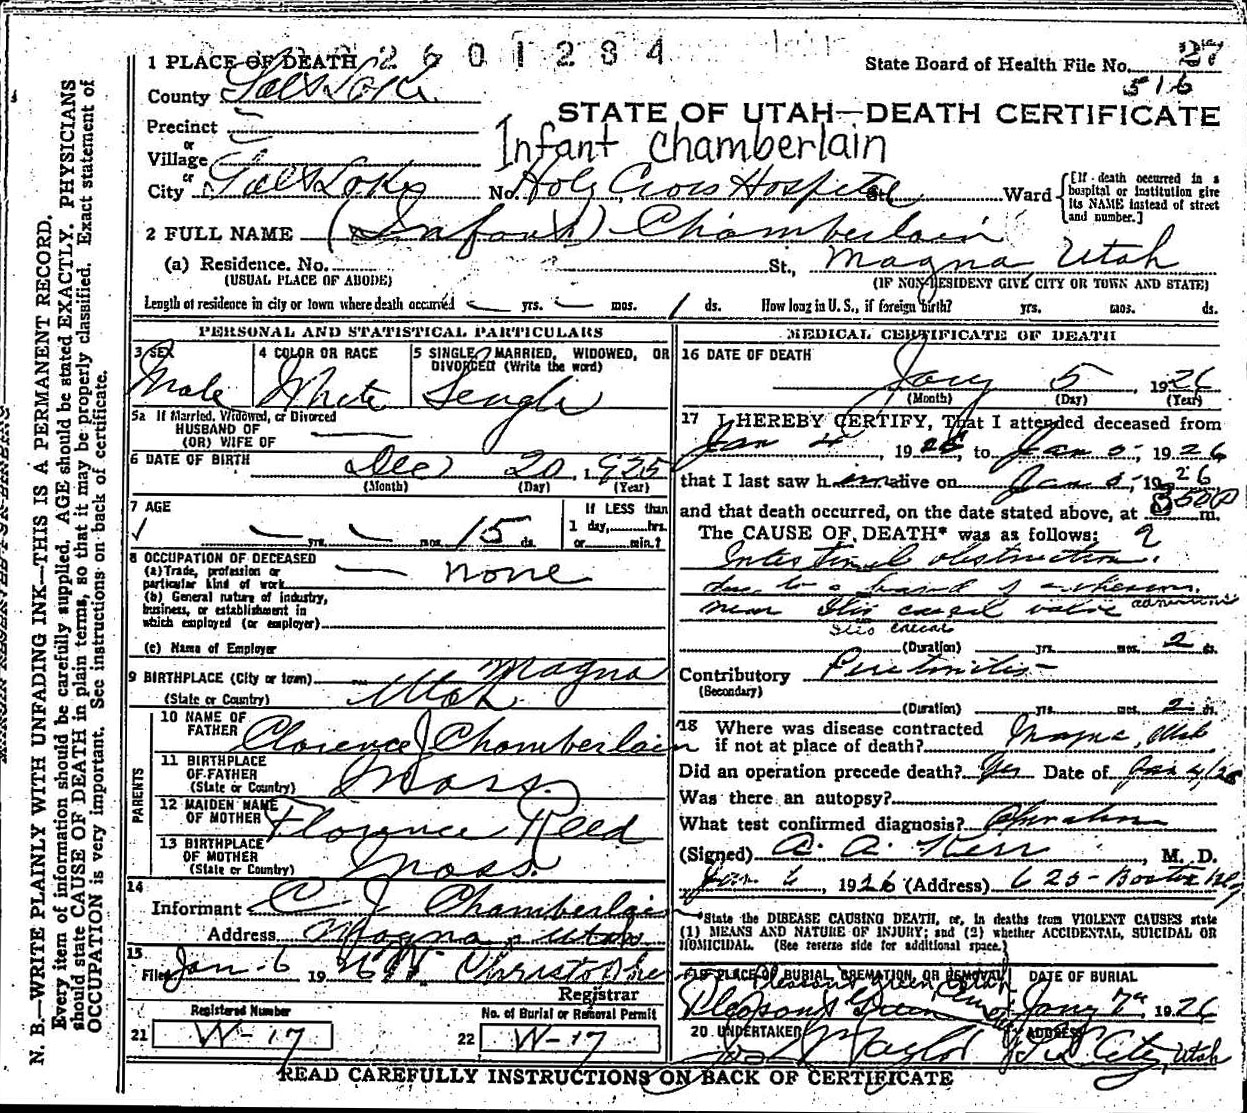 2601284
1 PLACE OF DEATH
State Board of Health File No. 27
516
County Salt Lake
STATE OF UTAH—DEATH CERTIFICATE
Precinct
or
Village
Infant Chamberlain
or
City Salt Lake No. Holy Cross Hospital St. Ward
[If death occurred in a hospital or institution give its NAME instead of street and number.]
2 FULL NAME (Infant) Chamberlain
(a) Residence. No. St., Magna, Utah
(USUAL PLACE OF ABODE) (IF NON-RESIDENT GIVE CITY OR TOWN AND STATE)
Length of residence in city or town where death occurred — yrs. — mos. 1 ds. How long in U. S., if foreign birth? yrs. mos. ds.
PERSONAL AND STATISTICAL PARTICULARS
3 SEX 4 COLOR OR RACE 5 SINGLE, MARRIED, WIDOWED, OR
DIVORCED (Write the word)
Male White Single
5a If Married, Widowed, or Divorced
HUSBAND OF
(OR) WIFE OF
6 DATE OF BIRTH Dec 20, 1925
(Month) (Day) (Year)
7 AGE If LESS than
1 day, hrs.
— yrs. — mos. 15 ds. or min.?
8 OCCUPATION OF DECEASED
(a) Trade, profession or
particular kind of work — none
(b) General nature of industry,
business, or establishment in
which employed (or employer)
(c) Name of Employer
9 BIRTHPLACE (City or town) Magna
(State or Country) Utah
PARENTS
10 NAME OF
FATHER Clarence J Chamberlain
11 BIRTHPLACE
OF FATHER
(State or Country) Mass.
12 MAIDEN NAME
OF MOTHER Florence Reed
13 BIRTHPLACE
OF MOTHER
(State or Country) Mass.
14
Informant C J Chamberlain
Address Magna, Utah
15
Filed Jan. 6 1926 Christopher
Registrar
Registered Number No. of Burial or Removal Permit
21 W-17 22 W-17
MEDICAL CERTIFICATE OF DEATH
16 DATE OF DEATH
Jany 5, 1926
(Month) (Day) (Year)
17 I HEREBY CERTIFY, That I attended deceased from
Jan 4, 1926, to Jan 5, 1926
that I last saw him alive on Jan 5, 1926
and that death occurred, on the date stated above, at m.
The CAUSE OF DEATH* was as follows:
Intestinal obstruction.
due to a band of adhesions
near Ilio caecal valve adhesions
Ilio caecal
(Duration) yrs. mos. 2 ds.
Contributory Peritonitis
(Secondary)
(Duration) yrs. mos. 2 ds.
18 Where was disease contracted
if not at place of death? Magna, Utah
Did an operation precede death? Yes Date of Jan 4/26
Was there an autopsy?
What test confirmed diagnosis? Operation
(Signed) A. A. Kerr, M. D.
Jan. 6, 1926 (Address) 625 - Boston Bldg
*State the DISEASE CAUSING DEATH, or, in deaths from VIOLENT CAUSES state
(1) MEANS AND NATURE OF INJURY; and (2) whether ACCIDENTAL, SUICIDAL OR
HOMICIDAL. (See reverse side for additional space.)
19 PLACE OF BURIAL, CREMATION, OR REMOVAL DATE OF BURIAL
Pleasant Green
Pleasant Green Jany 7th 1926
20 UNDERTAKER ADDRESS
Taylor City, Utah
READ CAREFULLY INSTRUCTIONS ON BACK OF CERTIFICATE
N. B.—WRITE PLAINLY WITH UNFADING INK—THIS IS A PERMANENT RECORD.
Every item of information should be carefully supplied. AGE should be stated EXACTLY. PHYSICIANS
should state CAUSE OF DEATH in plain terms, so that it may be properly classified. Exact statement of
OCCUPATION is very important. See instructions on back of certificate.